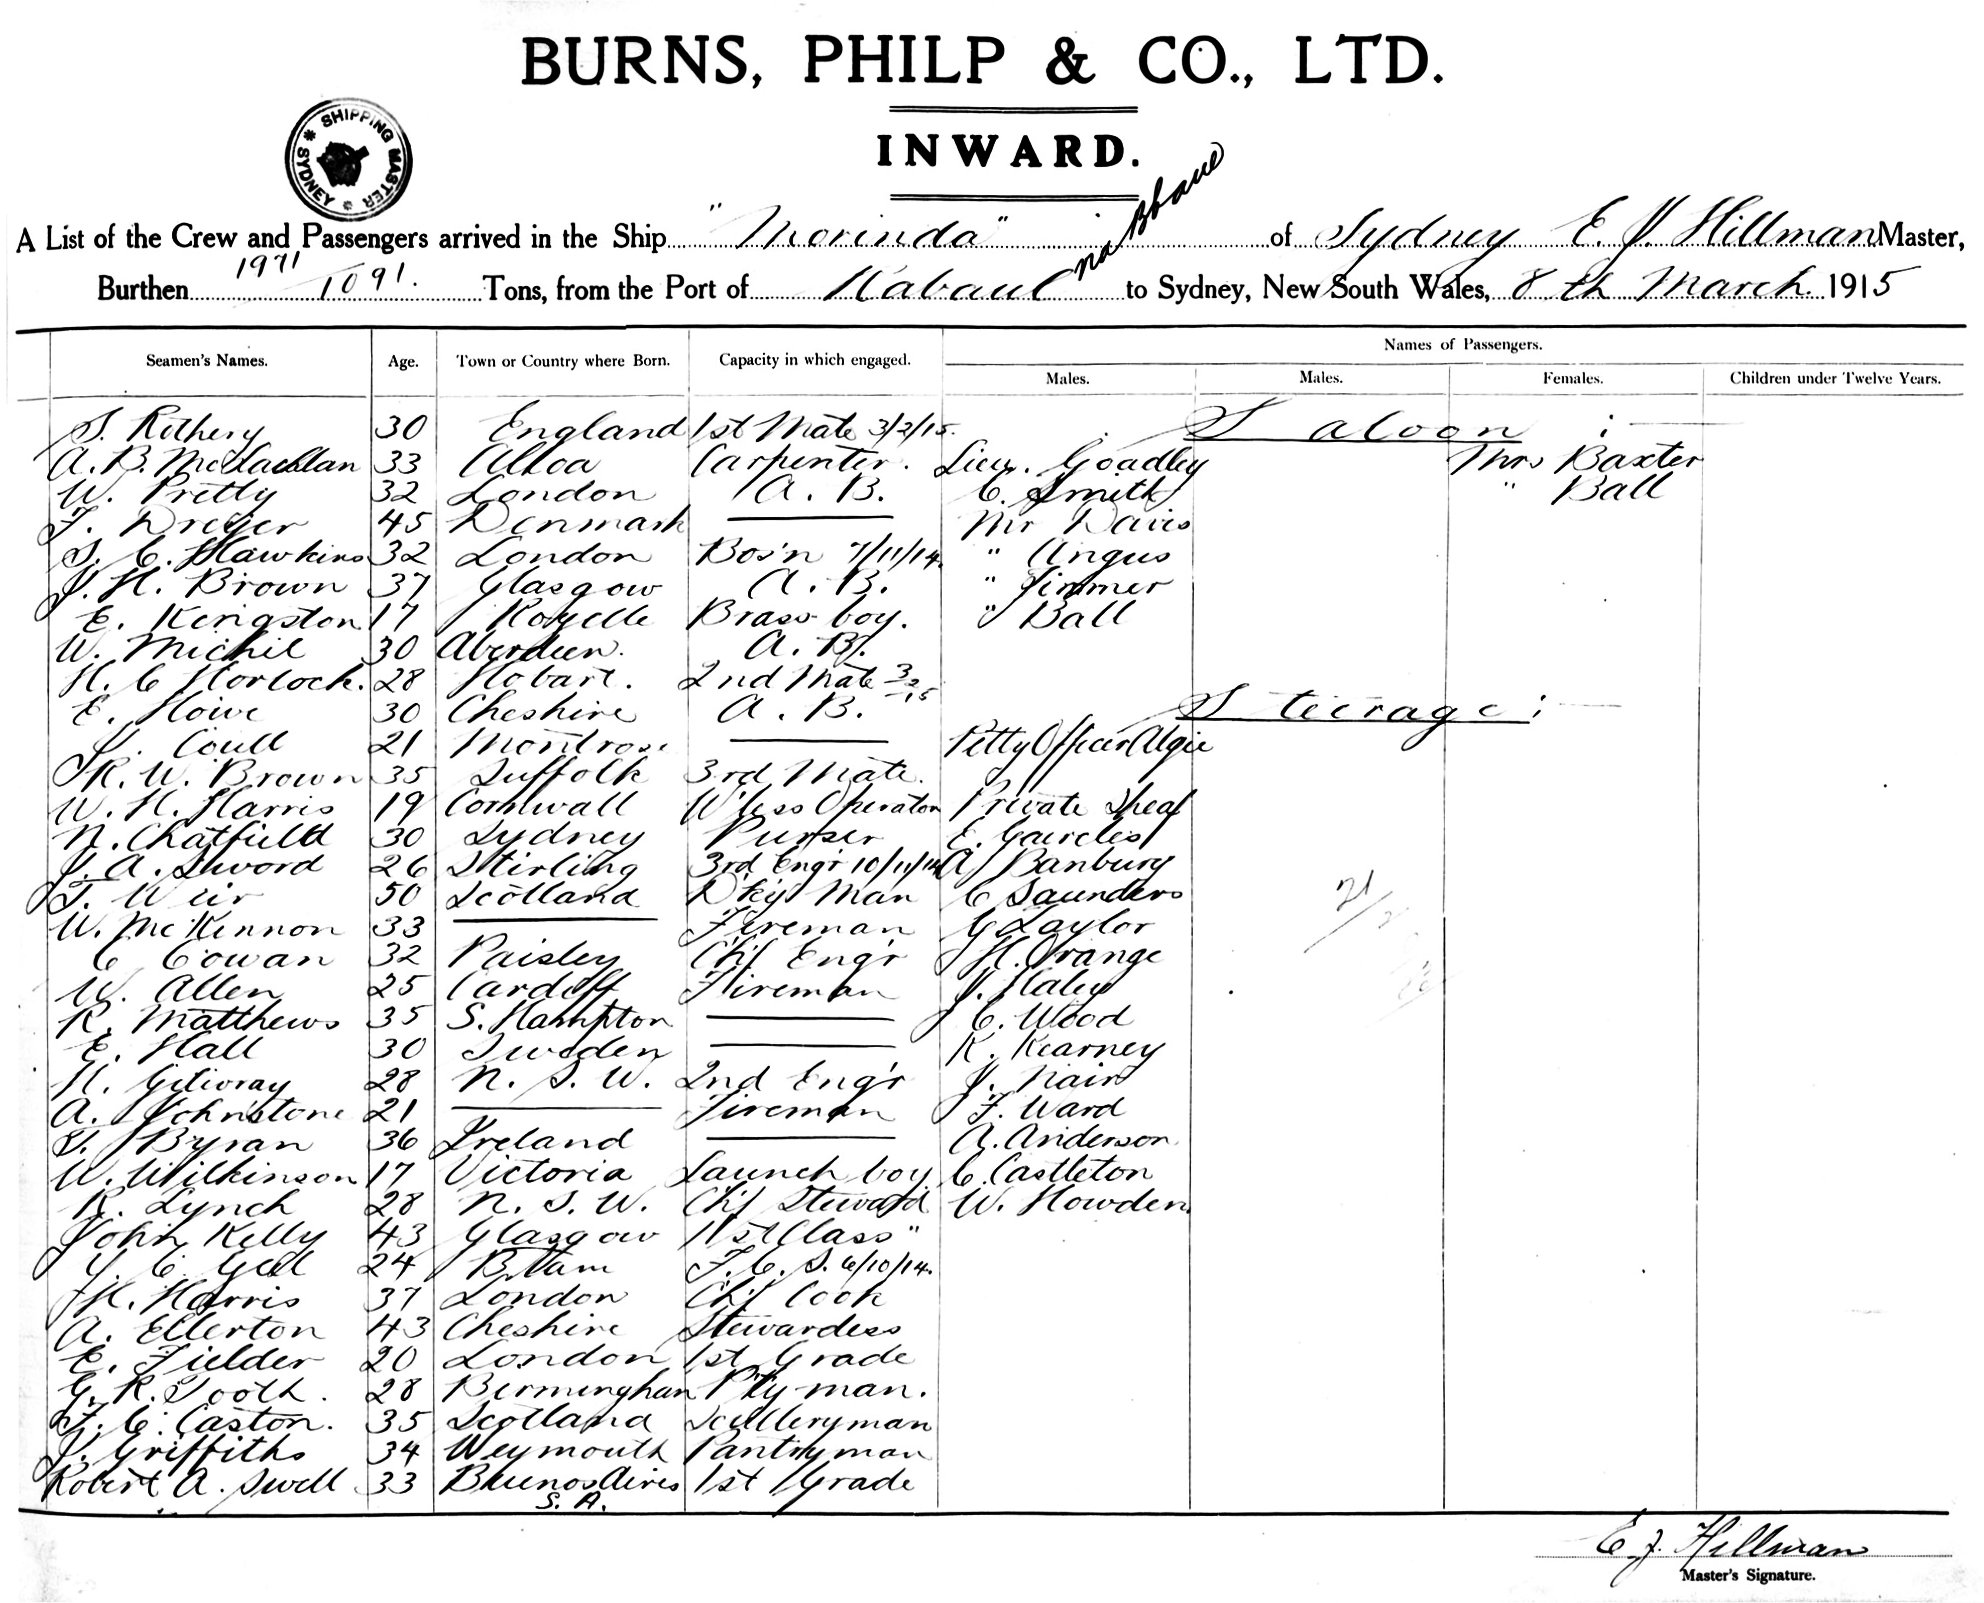 BURNS, PHILP & CO., LTD.
INWARD.
SHIPPING MASTER * SYDNEY *
A List of the Crew and Passengers arrived in the Ship "Morinda" of Sydney E. J. Hillman Master,
Burthen 1971/1091. Tons, from the Port of Rabaul to Sydney, New South Wales, 8th March 1915
Names of Passengers.
Seamen's Names. Age. Town or Country where Born. Capacity in which engaged. Males. Males. Females. Children under Twelve Years.
S. Rothery 30 England 1st Mate 3/2/15. Saloon :
A. B. McLachlan 33 Alloa Carpenter. Lieu. Goadley Mrs Baxter
W. Pretty 32 London A. B. C. Smith " Ball
F. Dreyer 45 Denmark — Mr Davis
S. C. Hawkins 32 London Bos'n 7/11/14. " Angus
J. H. Brown 37 Glasgow A. B. " Jimmer
E. Kengston 17 Rozelle Brass boy. " Ball
W. Michil 30 Aberdeen. A. B.
H. C Horlock. 28 Hobart. 2nd Mate 3/2/15
E. Howe 30 Cheshire A. B. Steerage :
J. Coull 21 Montrose — Petty Officer Algie
R. W. Brown 35 Suffolk 3rd Mate.
W. H. Harris 19 Cornwall W'less Operator Private Sheaf
N. Chatfield 30 Sydney Purser E.
J. A. Sword 26 Stirling 3rd Eng'r 10/11/14 A. Banbury
T. Weir 50 Scotland D'ky Man C Saunders
W. McKinnon 33 — Fireman G Taylor
C Cowan 32 Paisley Ch'f Eng'r H. Orange
W. Allen 25 Cardiff Fireman J. Haley
R. Matthews 35 S. Hampton — C. Wood
E. Hall 30 Sweden — K. Kearney
H. Gilivray 28 N. S. W. 2nd Eng'r J. Nair
A. Johnstone 21 — Fireman F. Ward
T. Byran 36 Ireland — A. Anderson
W. Wilkinson 17 Victoria Launch boy C. Castleton
R. Lynch 28 N. S. W. Ch'f Steward W. Howden
John Kelly 43 Glasgow 1st Class "
J. C. 24 F. C. S. 6/10/14.
H. Harris 37 London Ch'f Cook
A. Ellerton 43 Cheshire Stewardess
E. Fielder 20 London 1st Grade
G. R. Tooth. 28 Birmingham P'try man.
F. C. Caston. 35 Scotland Sculleryman
J. Griffiths 34 Weymouth Pantryman
Robert A. Swell 33 Buenos Aires 1st Grade
S. A.
E. J. Hillman
Master's Signature.